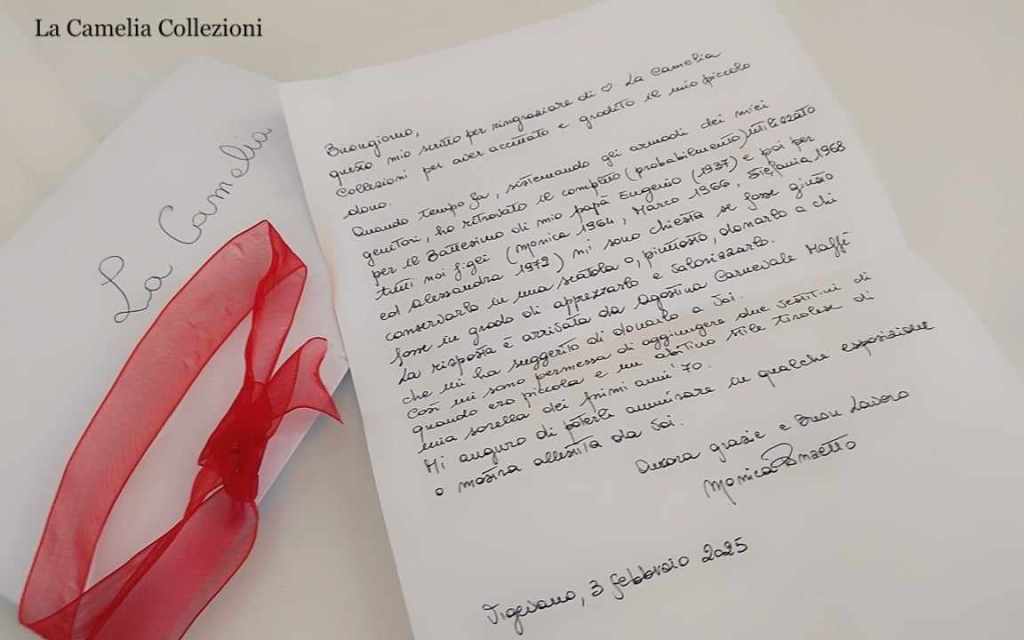 La Camelia Collezioni
La Camelia
Buongiorno,
questo mio scritto per ringraziare di ♡ La Camelia
Collezioni per aver accettato e gradito il mio piccolo
dono.
Quando tempo fa, sistemando gli armadi dei miei
genitori, ho ritrovato il completo (probabilmente) utilizzato
per il Battesimo di mio papà Eugenio (1937) e poi per
tutti noi figli (Monica 1964, Marco 1966, Stefania 1968
ed Alessandra 1972) mi sono chiesta se fosse giusto
conservarlo in una scatola o, piuttosto, donarlo a chi
fosse in grado di apprezzarlo e valorizzarlo.
La risposta è arrivata da Agostina Carnevale Maffè
che mi ha suggerito di donarlo a Voi.
Così mi sono permessa di aggiungere due vestitini di
quando ero piccola e un abitino stile tirolese di
mia sorella dei primi anni '70.
Mi auguro di poterli ammirare in qualche esposizione
o mostra allestita da Voi.
Ancora grazie e Buon Lavoro
Monica
Vigevano, 3 febbraio 2025